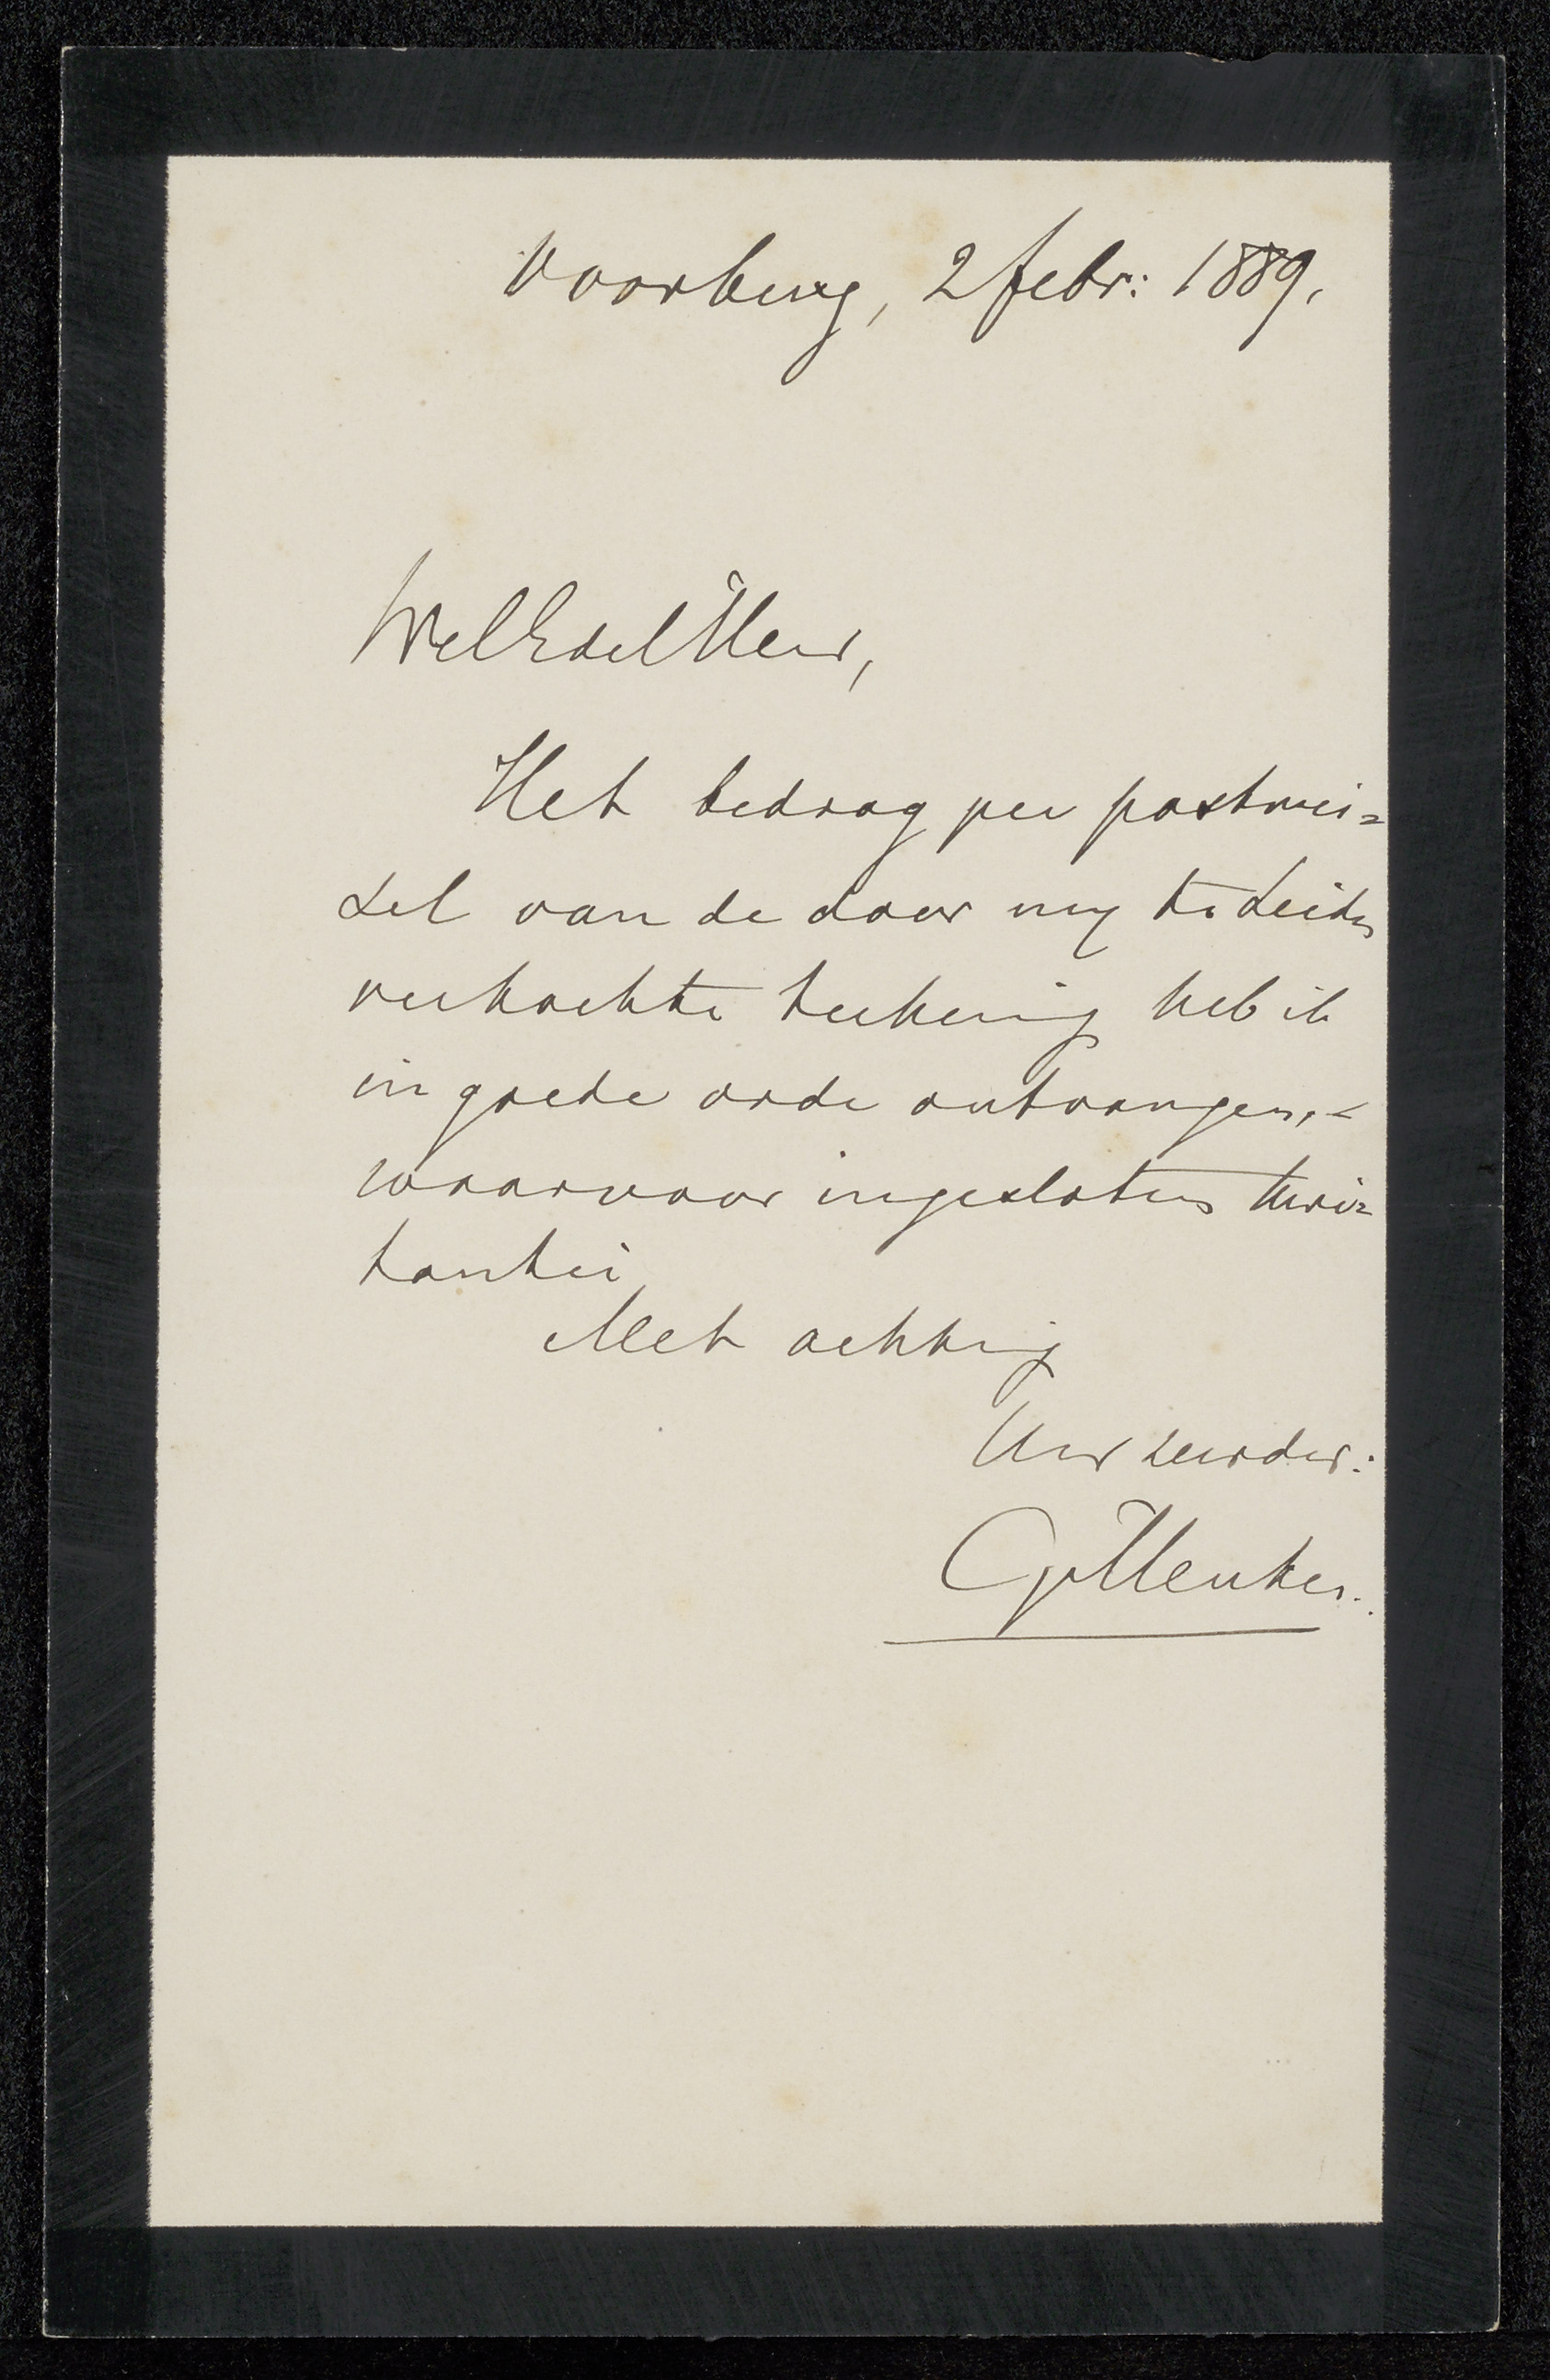 Voorburg, 2 febr: 1889.
WelEdel Heer,
Het bedrag per postwis=
sel van de door mij te Leiden
verkochte teekening heb ik
in goede orde ontvangen, -
waarvoor ingesloten kwi=
tantie
Met achting
Uw dienaar: